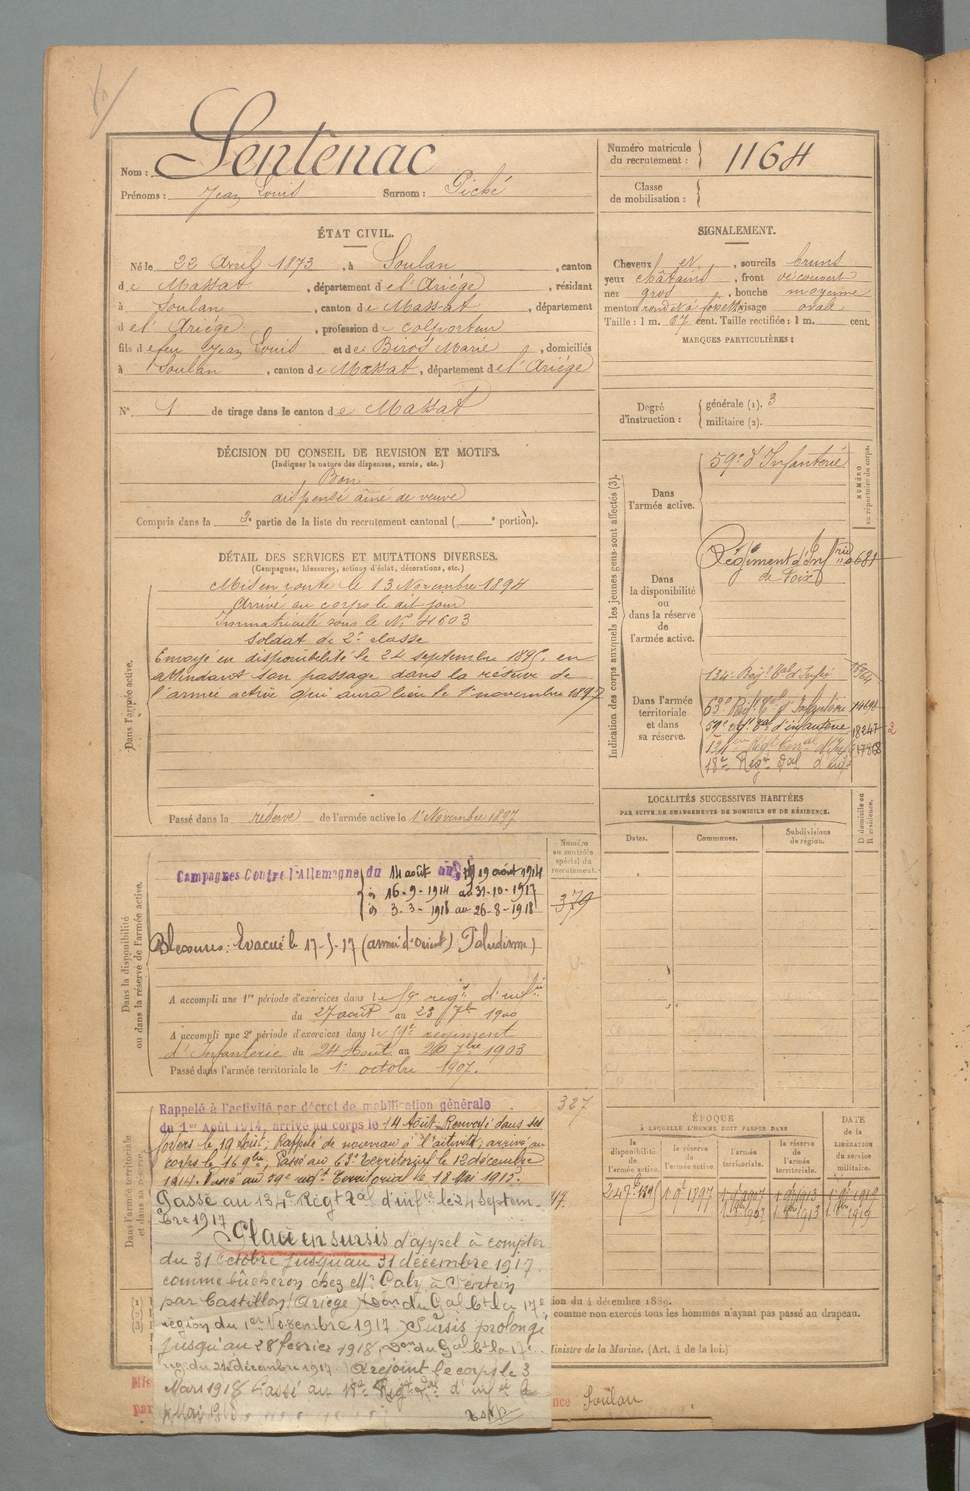 Nom : Sentenac
Prénoms : Jean Louis Surnom : Piché
Numéro matricule du recrutement : 1164
Classe de mobilisation :
ÉTAT CIVIL.
Né le 22 Avril 1873, à Soulan, canton
de Massat, département de l'Ariége, résidant
à Soulan, canton de Massat, département
de l' Ariége, profession de colporteur
fils de feu Jean Louis et de Biros Marie, domiciliés
à Soulan, canton de Massat, département de l'Ariége
N° 1 de tirage dans le canton de Massat
SIGNALEMENT.
Cheveux et, sourcils bruns
yeux châtains, front découvert
nez gros, bouche moyenne
menton rond à fossette visage ovale
Taille : 1 m. 67 cent. Taille rectifiée : 1 m. cent.
MARQUES PARTICULIÈRES :
Degré d'instruction : générale (1). 3
militaire (2).
DÉCISION DU CONSEIL DE REVISION ET MOTIFS.
(Indiquer la nature des dispenses, sursis, etc.)
Bon
dispensé aîné de veuve
Compris dans la 3e partie de la liste du recrutement cantonal ( e portion).
DÉTAIL DES SERVICES ET MUTATIONS DIVERSES.
(Campagnes, blessures, actions d'éclat, décorations, etc.)
Dans l'armée active.
Mis en route le 13 Novembre 1894
Arrivé au corps le dit jour
Immatriculé sous le No 4603
soldat de 2e classe
Envoyé en disponibilité le 24 septembre 1895, en
attendant son passage dans la réserve de
l'armée active qui aura lieu le 1er novembre 1897
Passé dans la réserve de l'armée active le 1er Novembre 1897
Indication des corps auxquels les jeunes gens sont affectés (3).
NUMÉRO au répertoire du corps.
Dans l'armée active.
59e d'Infanterie
Dans la disponibilité ou dans la réserve de l'armée active.
Régiment d'Infrie de Foix 681
Dans l'armée territoriale et dans sa réserve.
134e Régt tal d'Infie
63e Régt tal d'Infanterie
59e Régt tal d'infanterie 18247
134e Régt
18e Régt tal d'inf
LOCALITÉS SUCCESSIVES HABITÉES
PAR SUITE DE CHANGEMENTS DE DOMICILE OU DE RÉSIDENCE.
Dates. Communes. Subdivisions de région.
D domicile ou R résidence.
Dans la disponibilité ou dans la réserve de l'armée active.
Numéro au contrôle spécial du recrutement.
379
Campagnes Contre l'Allemagne du 14 août au 19 août 1914
16-9-1914 au 31-10-1917
3-3-1918 au 26-8-1918
Blessures : Evacué le 17-5-17 (armée d'Orient) Paludisme
A accompli une 1re période d'exercices dans le 59e régt d'infie
du 27 août au 23 7bre 1900
A accompli une 2e période d'exercices dans le 59e régiment
d'Infanterie du 24 Août au 20 7bre 1903
Passé dans l'armée territoriale le 1er octobre 1907.
Dans l'armée territoriale et dans sa
327
Rappelé à l'activité par décret de mobilisation générale
du 1er Août 1914, arrivé au corps le 14 Août. Renvoyé dans ses
foyers le 19 Août, Rappelé de nouveau à l'activité, arrivé au
corps le 16 9bre, Passé au 63e territorial le 12 décembre
1914. Passé au 59e régt Territorial le 18 Mai 1915.
Passé au 134e Régt tal d'infie le 24 Septem-
bre 1917
Placé en sursis d'appel à compter
du 31 Octobre jusqu'au 31 décembre 1917
comme bûcheron chez Mr
par Castillon (Ariège) Don du Gal Ct la 17e
région du 1er Novembre 1917) Sursis prolongé
jusqu'au 28 février 1918, Don du Gal Ct la 17e
rég. du 24 décembre 1917. A rejoint le corps le 3
Mars 1918. Passé au 18e Régt tal d'inf le
Mai 1918
ÉPOQUE
À LAQUELLE L'HOMME DOIT PASSER DANS
la disponibilité de l'armée active.
la réserve de l'armée active.
l'armée territoriale.
la réserve de l'armée territoriale.
DATE de la LIBÉRATION du service militaire.
1er 9bre 1897
1er 8bre 1907
1er 8bre 1913
1er 8bre 1919
(1)
(2)
(3)
ion du 4 décembre 1889.
comme non exercés tous les hommes n'ayant pas passé au drapeau.
Ministre de la Marine. (Art. 4 de la loi.)
Mis
par
nce Soulan